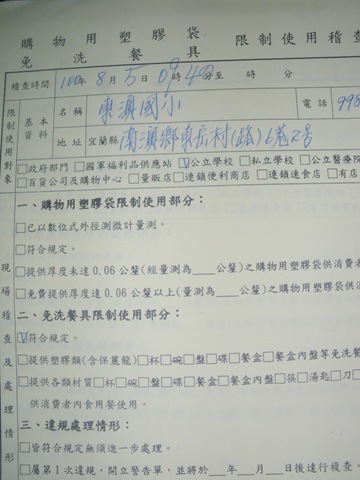 購物用塑膠袋
免洗餐具 限制使用稽查
稽查時間 100年8月5日09時40分至 時 分
限制使用對象
基本資料
名稱 東澳國小 電話 998
地址 宜蘭縣 南澳鄉東岳村(路)2巷2號
□政府部門□國軍福利品供應站☑公立學校□私立學校□公立醫療院
□百貨公司及購物中心□量販店□連鎖便利商店□連鎖速食店□有店
現場稽查及處理情形
一、購物用塑膠袋限制使用部分：
□已以數位式外徑測微計量測。
□符合規定。
□提供厚度未達0.06公釐(經量測為____公釐)之購物用塑膠袋供消費者
□免費提供厚度達0.06公釐以上(量測為____公釐)之購物用塑膠袋供消
二、免洗餐具限制使用部分：
☑符合規定。
□提供塑膠類(含保麗龍)□杯□碗□盤□碟□餐盒□餐盒內盤等免洗餐
□提供各類材質□杯□碗□盤□碟□餐盒□餐盒內盤□筷□湯匙□刀□
供消費者內食用餐使用。
三、違規處理情形：
□皆符合規定無須進一步處理。
□屬第1次違規，開立警告單，並將於___年___月___日後進行複查。